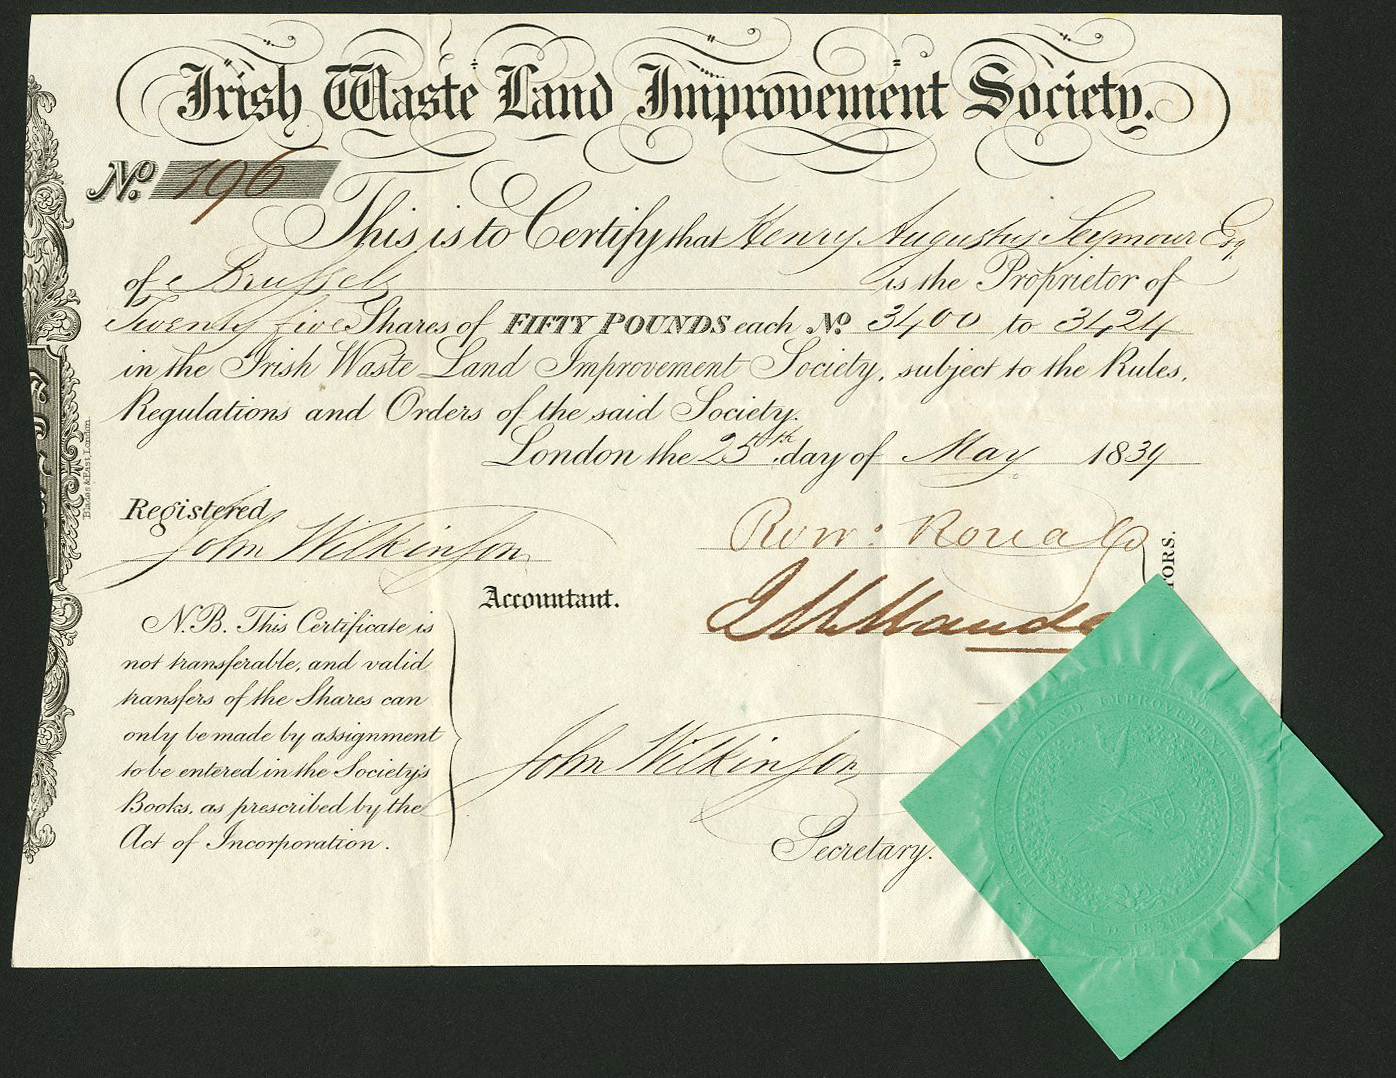 Irish Waste Land Improvement Society.
No. 196
This is to Certify that Henry Augustus Seymour Esq
of Brussels is the Proprietor of
Twenty five Shares of FIFTY POUNDS each No. 3400 to 3424
in the Irish Waste Land Improvement Society, subject to the Rules,
Regulations and Orders of the said Society.
London the 25th day of May 1839
Registered
John Wilkinson
Accountant.
TORS.
N.B. This Certificate is
not transferable, and valid
transfers of the Shares can
only be made by assignment
to be entered in the Society's
Books, as prescribed by the
Act of Incorporation.
John Wilkinson
Secretary.
Blades & East, London
IMPROVEMENT